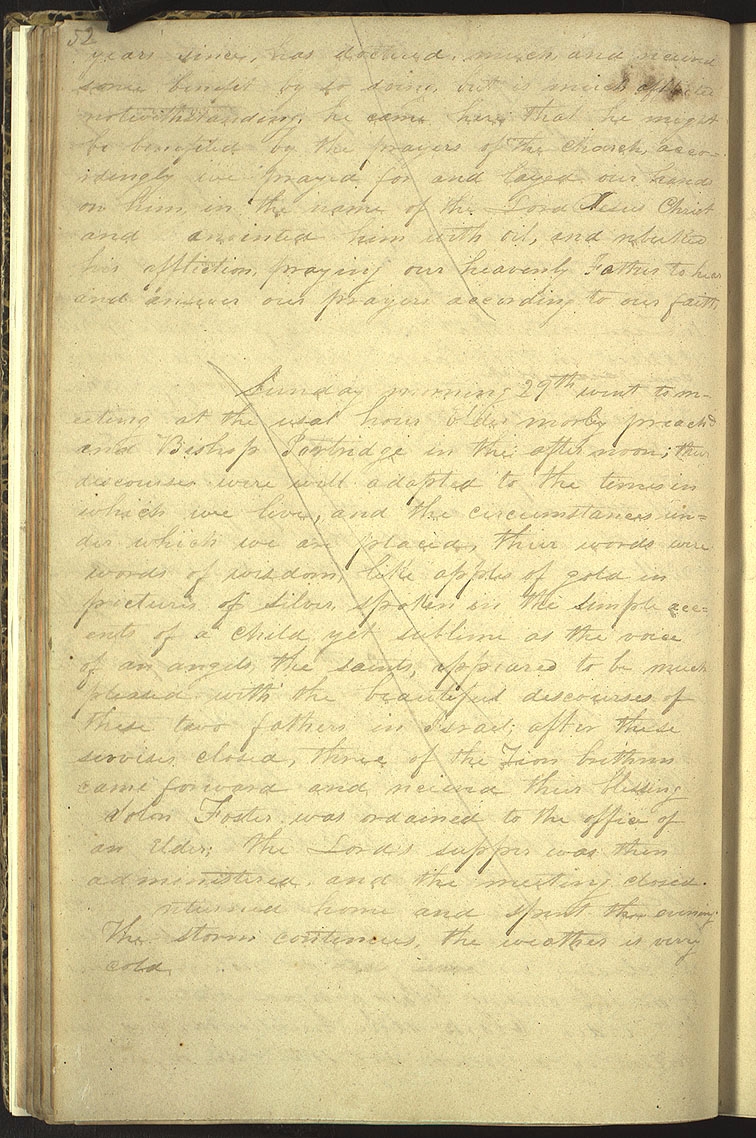 52
years since, has doctered, much, and received
some benefit by so doing, but is much afflicted
notwithstanding, he came here that he might
be benefited by the prayers of the church, acco-
rdingly we prayed for and layed our hands
on him, in the name of the Lord Jesus Christ
and anointed him with oil, and rebuked
his affliction, praying our heavenly Father to hear
and answer our prayers according to our faith,
Sunday morning 29th went to m-
eeting at the usal hour older morley preachd
and Bishop Partridge in the after noon; their
discourses were well adapted to the times in
which we live, and the circumstances un=
der which we are placed, their words were
words of wisdom, like apples of gold in
pictures of silver, spoken in the simple acc=
ents of a child, yet sublime as the voice
of an angel, the saints, appeared to be much
pleased with the beautiful discourses of
these two fathers in Israel; after these
servises closed, three of the Zion brethren
came forward and recieved their blessing
Solon Foster was ordained to the office of
an Elder; the Lord's supper was then
administered, and the meeting closed.
returned home and spent the evening.
The storm continues, the weather is very
cold,